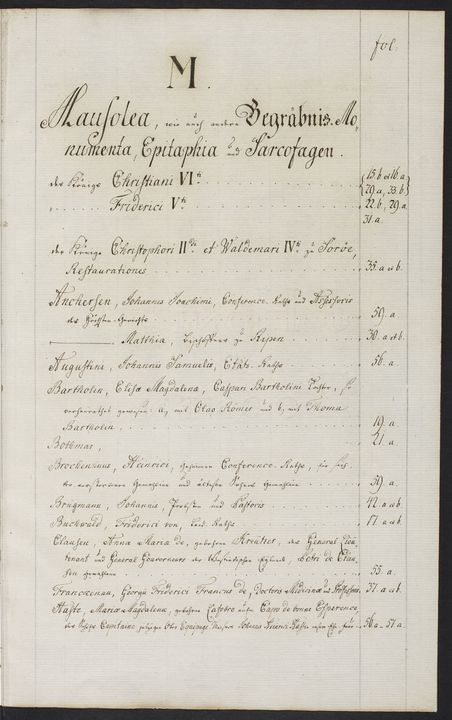 fol.
M.
Mausolea, wie auch andere Begräbnis-Mo-
numenta, Epitaphia und Sarcofagen.
der Könige Christiani VIti {15.b et 16.a.
{29.a, 33.b}
" Friderici Vti 22.b, 29.a
31.a.
der Könige Christophori IIdi et Waldemari IVti zu Soröe,
Restaurationes 35.a et b.
Anchersen, Johannis Joachimi, Conference-Raths und Assessoris
des Höchsten-Gerichts 59.a
Matthiæ, Bischoffens zu Ripen 30.a et b.
Augustini, Johannis Samuelis, Etats-Raths 56.a
Bartholin, Elisæ Magdalena, Caspari Bartholini Tochter, so
verheyrathet gewesen a, mit Olao Römer und b, mit Thoma
Bartholin, 19.a
Bothmar, 21.a
Brockenhuus, Heinrici, Geheimen Conference-Raths, für sich,
39.a.
Brügmann, Johannis, und Pastoris 42.a et b
Buchwald, Friderici von, Land-Raths 17.a et b.
Clausen, Anna Maria de, gebohrne Kreutzer, des General-Lieu-
tenant und General-Gouverneurs des Westindischen Eylands, Petri de Clau-
sen Gemahlin 55.a
Franckenau, Georgii Friderici Francus de, Doctoris Medicinæ und Professoris 37.a et b.
Haste, Mariæ Magdalena, gebohrne Castro de bonne Esperence,
des Schifs-Capitains, 56a-57.a